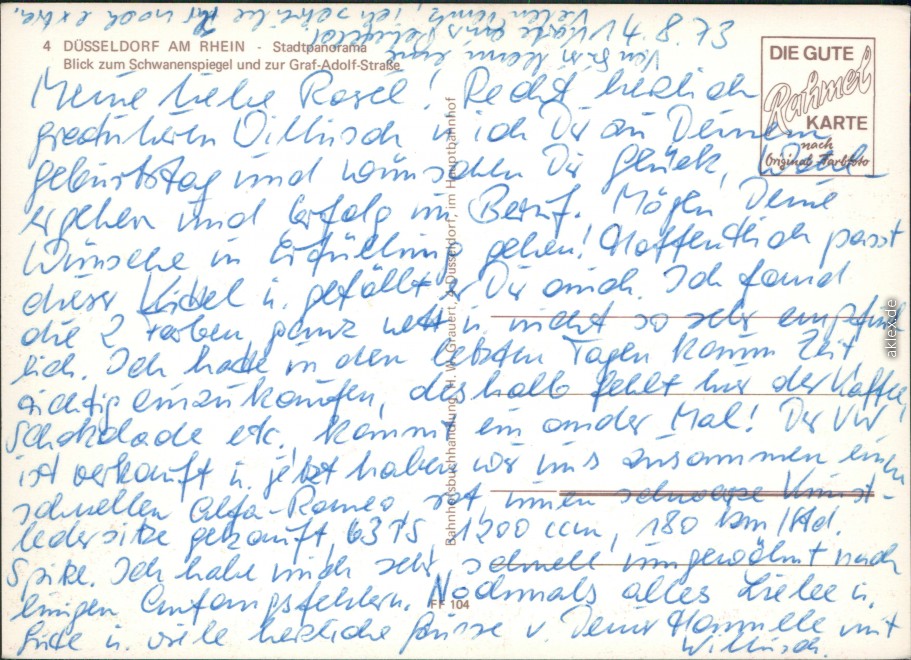 4 DÜSSELDORF AM RHEIN - Stadtpanorama
Blick zum Schwanenspiegel und zur Graf-Adolf-Straße
DIE GUTE
Rahmel
KARTE
nach
Original Farbfoto
4.8.73
Vielen Dank, ich schreibe Ihr noch extra.
Meine liebe Rosel! Recht herzlich
gratulieren Willusch u. ich Dir zu Deinem
Geburtstag und wünschen Dir Glück, Wohl-
ergehen und Erfolg im Beruf. Mögen Deine
Wünsche in Erfüllung gehen! Hoffentlich passt
dieser Kittel u. gefällt er Dir auch. Ich fand
die 2 Farben ganz nett u. nicht so sehr empfind
lich. Ich hatte in den letzten Tagen kaum Zeit
richtig einzukaufen, deshalb fehlt hier der Kaffee,
Schokolade etc. kommt ein ander Mal! Der VW
ist verkauft u. jetzt haben wir uns zusammen einen
schnellen Alfa-Romeo, rot, innen schwarze Kunst-
ledersitze gekauft, 63 PS 1200 ccm, 180 km/Std.
Spitze. Ich habe mich sehr schnell umgewöhnt nach
einigen Anfangsfehlern. Nochmals alles Liebe u.
Gute u. viele herzliche Grüsse v. Deiner Hannelle mit
Willusch.
Bahnhofsbuchhandlung H. W. Grauert, 4 Düsseldorf, im Hauptbahnhof
FF 104
aklex.de